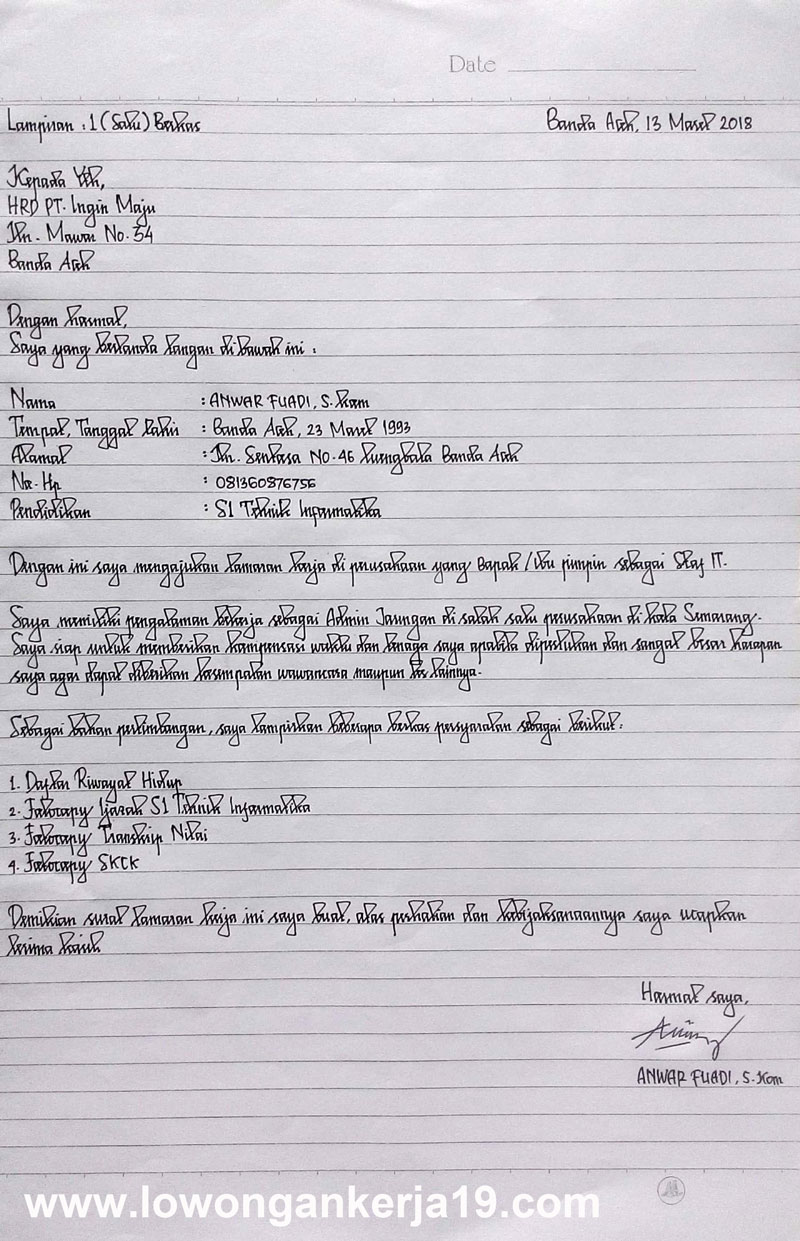 Date
Lampiran : 1 (Satu) Berkas
Banda Aceh, 13 Maret 2018
Kepada Yth,
HRD PT. Ingin Maju
Jln. Mawar No. 54
Banda Aceh
Dengan hormat,
Saya yang bertanda tangan di bawah ini :
Nama : ANWAR FUADI, S.kom
Tempat, Tanggal lahir : Banda Aceh, 23 Maret 1993
Alamat : Jln. Sentosa No. 46 Luengbata Banda Aceh
No. Hp : 081360876756
Pendidikan : S1 Teknik Informatika
Dengan ini saya mengajukan lamaran kerja di perusahaan yang Bapak / Ibu pimpin sebagai Staf IT.
Saya memiliki pengalaman bekerja sebagai Admin Jaringan di salah satu perusahaan di kota Semarang.
Saya siap untuk memberikan kompensasi waktu dan tenaga saya apabila diperlukan dan sangat besar harapan
saya agar dapat diberikan kesempatan wawancara maupun tes lainnya.
Sebagai bahan pertimbangan, saya lampirkan beberapa berkas persyaratan sebagai berikut :
1. Daftar Riwayat Hidup
2. Fotocopy Ijazah S1 Teknik Informatika
3. Fotocopy Transkip Nilai
4. Fotocopy SKCK
Demikian surat lamaran kerja ini saya buat, atas perhatian dan kebijaksanaannya saya ucapkan
terima kasih
Hormat saya,
ANWAR FUADI, S.Kom
www.lowongankerja19.com